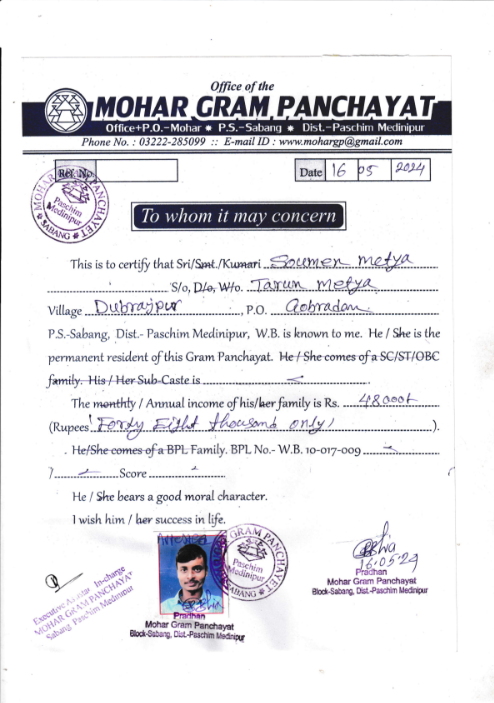 Office of the
MOHAR GRAM PANCHAYAT
Office+P.O.-Mohar * P.S.-Sabang * Dist.-Paschim Medinipur
Phone No. : 03222-285099 :: E-mail ID : www.mohargp@gmail.com
Ref. No.
Date 16 05 2024
MOHAR GRAM PANCHAYET
Paschim
Medinipur
SABANG
To whom it may concern
This is to certify that Sri/Smt./Kumari Soumen Metya
S/o, D/o, W/o. Tarun Metya
Village Dubrajpur P.O. Gobradan
P.S.-Sabang, Dist.- Paschim Medinipur, W.B. is known to me. He / She is the
permanent resident of this Gram Panchayat. He / She comes of a SC/ST/OBC
family. His / Her Sub-Caste is
The monthly / Annual income of his/her family is Rs. 48000/-
(Rupees Forty Eight thousand only/ ).
He/She comes of a BPL Family. BPL No.- W.B. 10-017-009
/ Score
He / She bears a good moral character.
I wish him / her success in life.
Attested
GRAM PANCHAYET
Paschim
Medinipur
SABANG
16.05.24
Pradhan
Mohar Gram Panchayat
Block-Sabang, Dist.-Paschim Medinipur
Executive In-charge
MOHAR GRAM PANCHAYAT
Sabang Paschim Medinipur
Pradhan
Mohar Gram Panchayat
Block-Sabang, Dist.-Paschim Medinipur